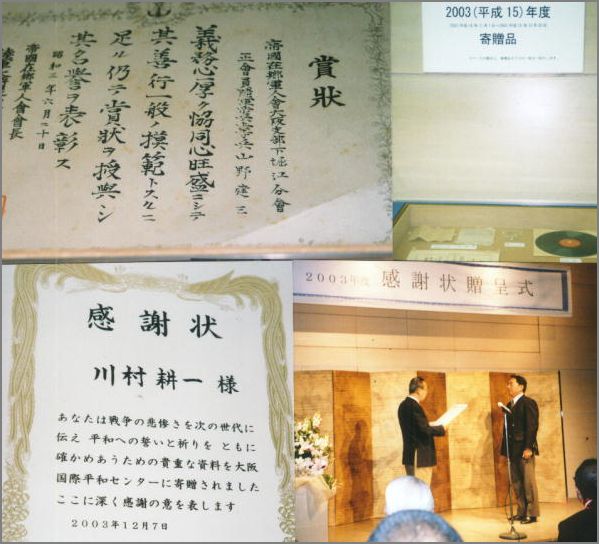 賞狀
帝國在郷軍人會大阪支部下堀江分會
山野
義務心厚ク協同心旺盛ニシテ
其ノ善行一般ノ模範トスルニ
足ル仍テ賞狀ヲ授與シ
其名譽ヲ表彰ス
昭和三年六月二十日
帝國在郷軍人會會長
2003(平成15)年度
寄贈品
感謝状
川村耕一 様
あなたは戦争の悲惨さを次の世代に
伝え 平和への誓いと祈りを ともに
確かめあうための貴重な資料を大阪
国際平和センターに寄贈されました
ここに深く感謝の意を表します
2003年12月7日
2003年度 感謝状贈呈式